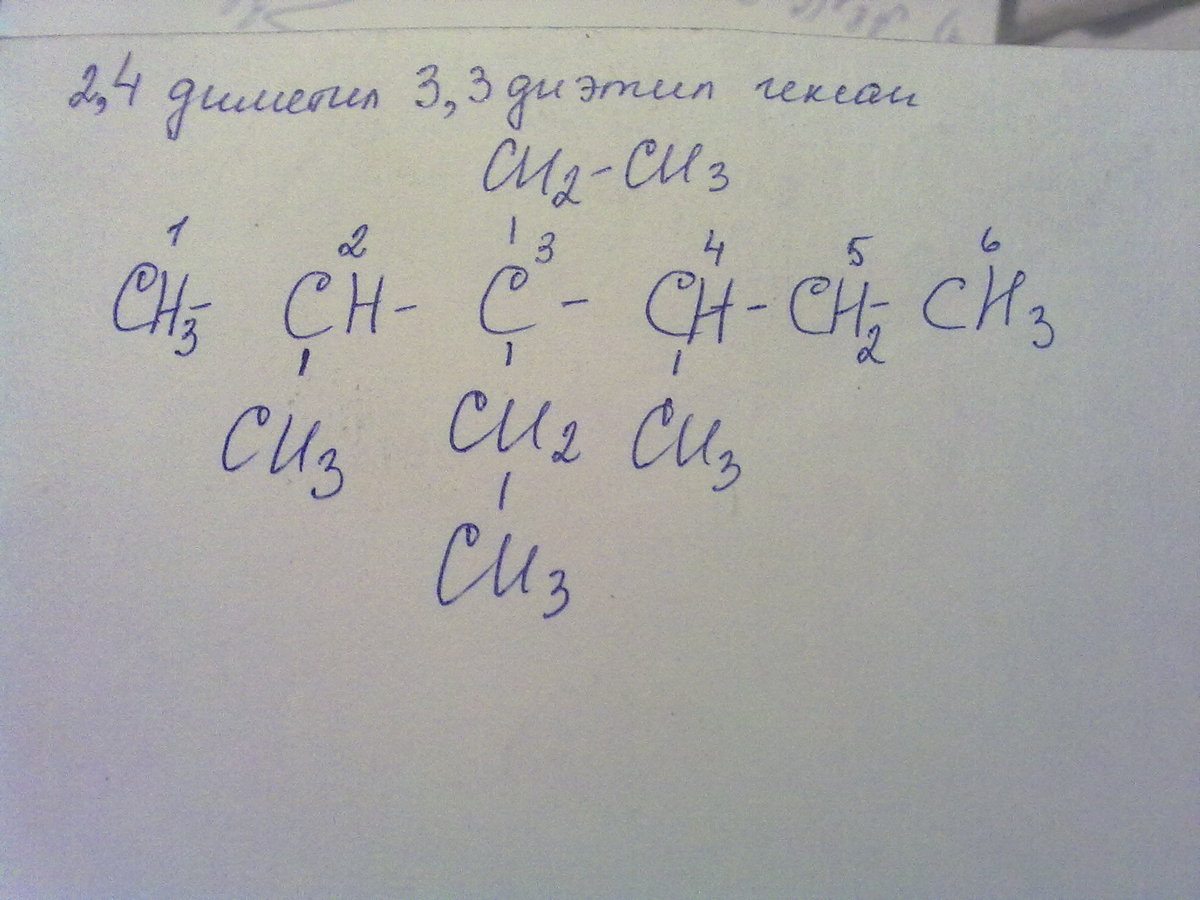 2,4 диметил 3,3 диэтил гексан
CH2-CH3
1 2 3 4 5 6
CH3- CH- C - CH- CH2- CH3
CH3 CH2 CH3
CH3